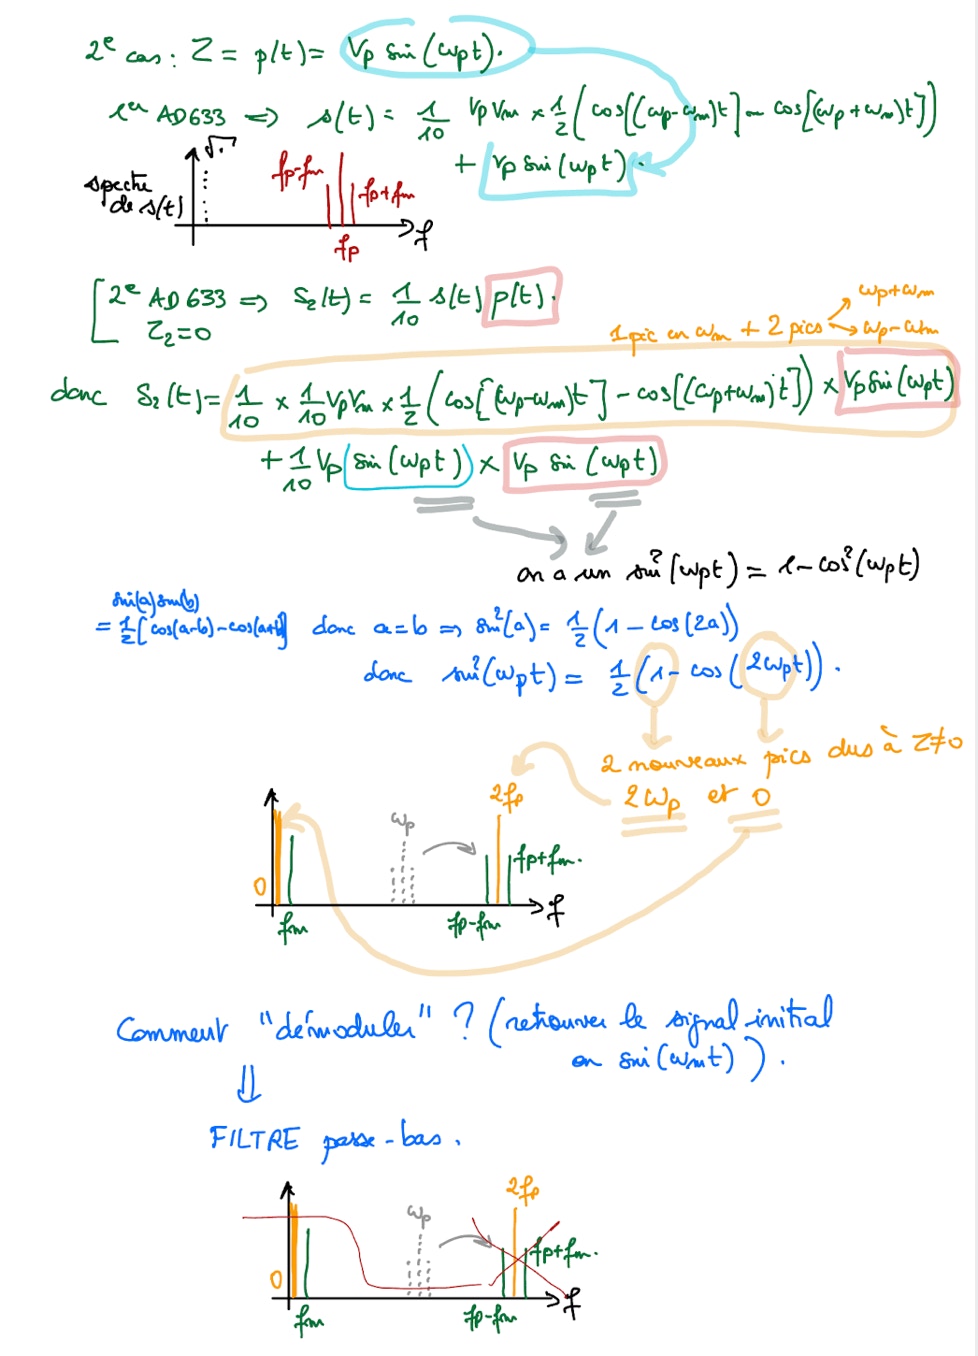 2e cas : Z = p(t) = Vp sin(ωpt).
1er AD633 ⇒ s(t) = 1/10 VpVm × 1/2 (cos[(ωp-ωm)t] - cos[(ωp+ωm)t])
+ Vp sin(ωpt).
spectre de s(t)
fp-fm
fp+fm
fp
f
2e AD633 ⇒ S2(t) = 1/10 s(t) p(t).
Z2=0
1 pic en ωm + 2 pics
ωp+ωm
ωp-ωm
donc S2(t) = 1/10 × 1/10 VpVm × 1/2 (cos[(ωp-ωm)t] - cos[(ωp+ωm)t]) × Vp sin(ωpt)
+ 1/10 Vp sin(ωpt) × Vp sin(ωpt)
on a un sin²(ωpt) = 1-cos²(ωpt)
sin(a)sin(b)
= 1/2 [cos(a-b)-cos(a+b)] donc a=b ⇒ sin²(a) = 1/2 (1 - cos(2a))
donc sin²(ωpt) = 1/2 (1 - cos(2ωpt)).
2 nouveaux pics dus à Z≠0
2ωp et 0
2fp
ωp
fp+fm.
0
fm
fp-fm
f
Comment "démoduler" ? (retrouver le signal initial
en sin(ωmt)).
⇓
FILTRE passe-bas.
2fp
ωp
fp+fm.
0
fm
fp-fm
f